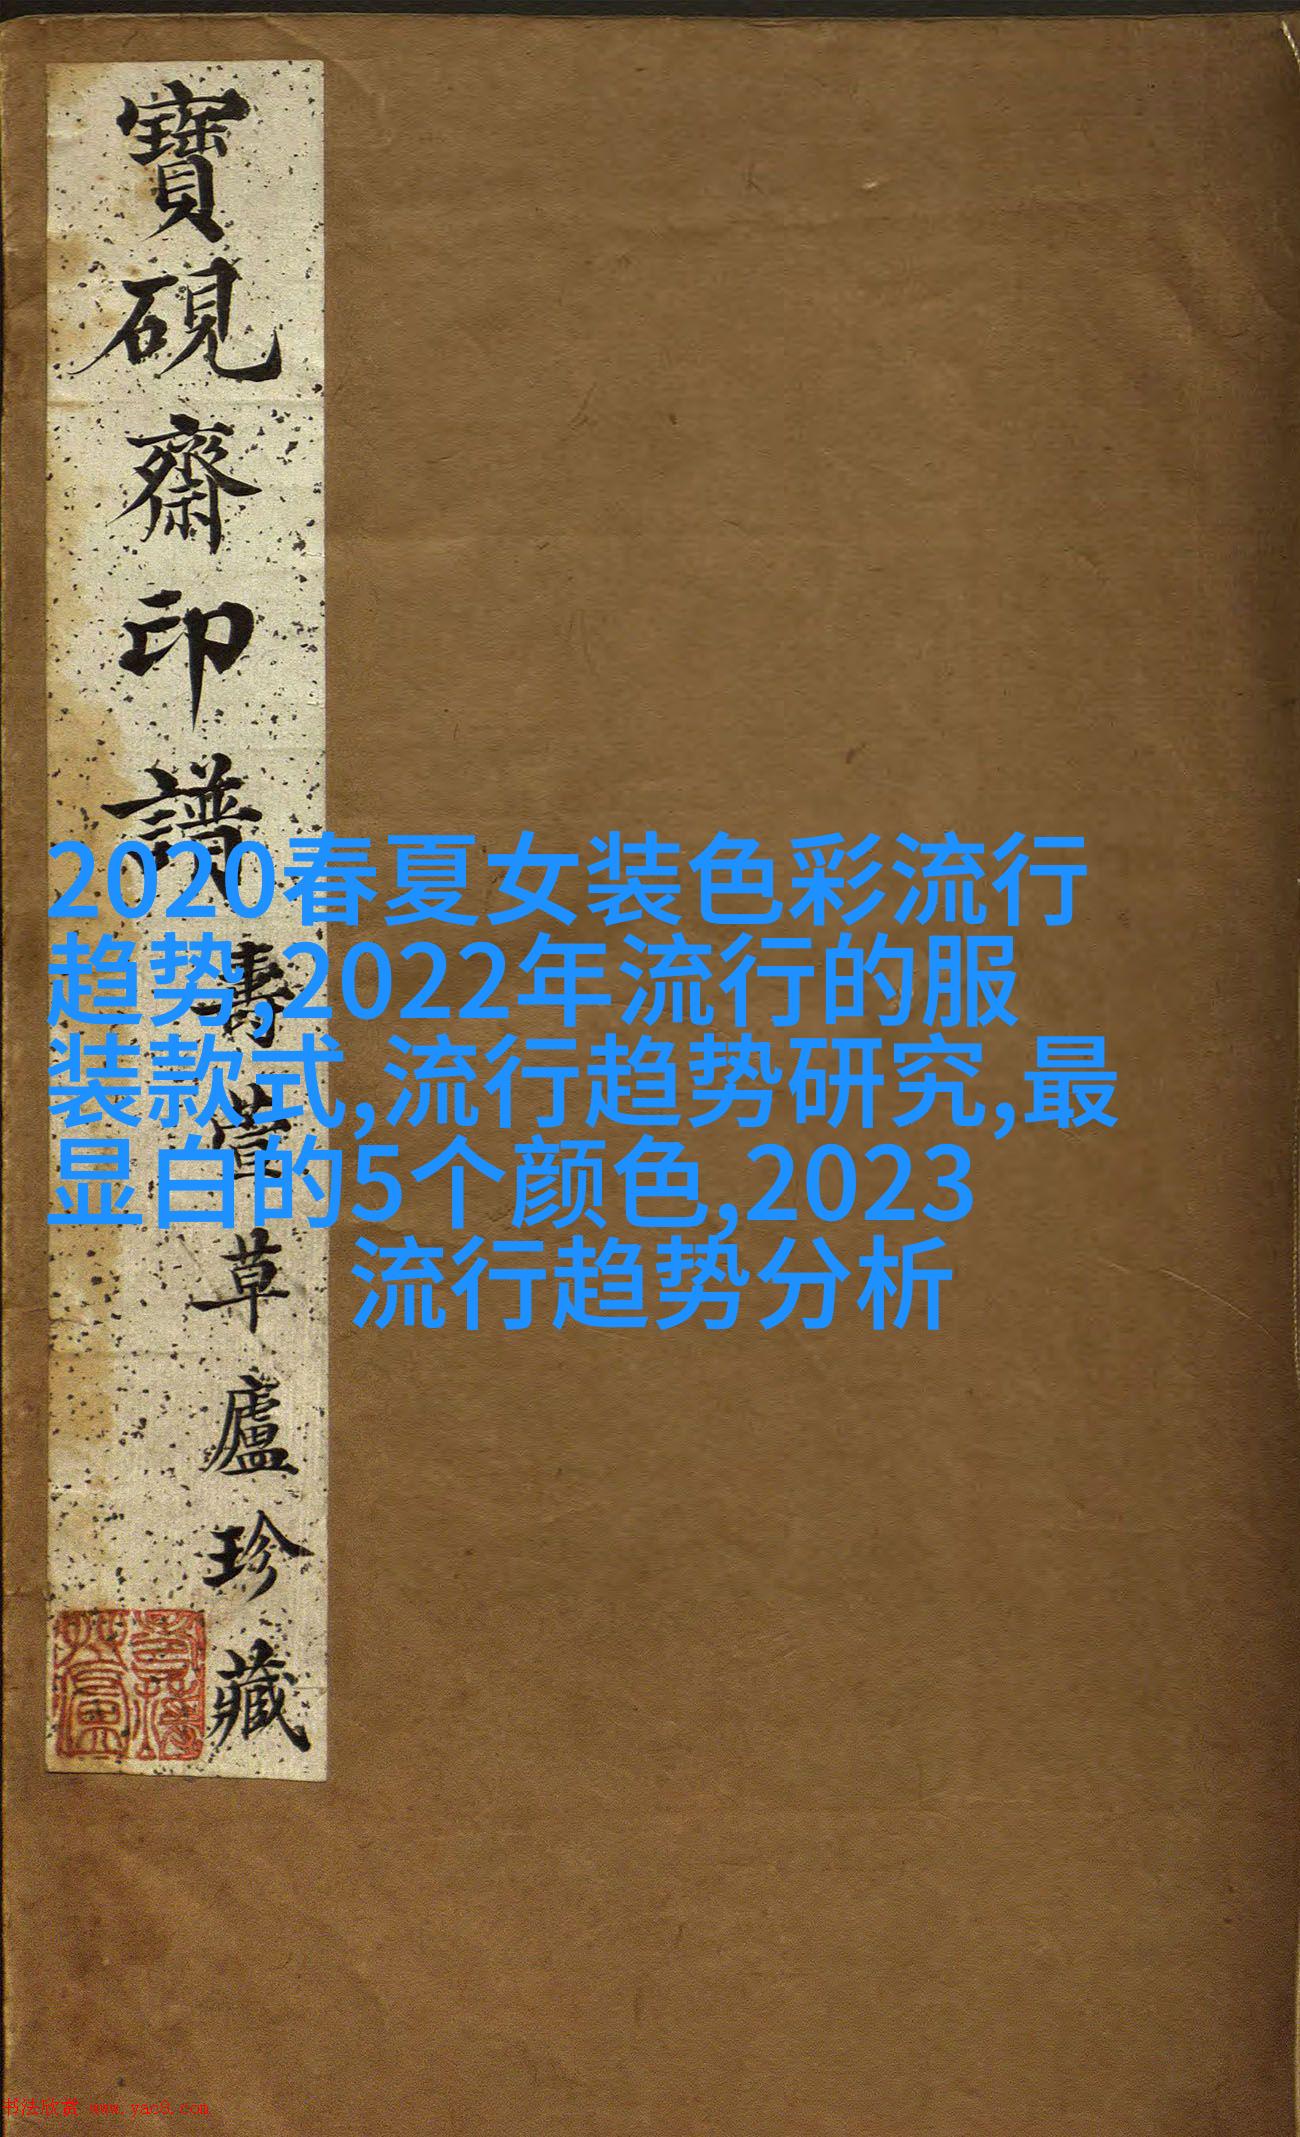 寶硯齋印譜
壽萱草廬珍藏
2020春夏女装色彩流行
趋势,2022年流行的服
装款式,流行趋势研究,最
显白的5个颜色,2023
流行趋势分析
书法欣赏 www.yac8.com